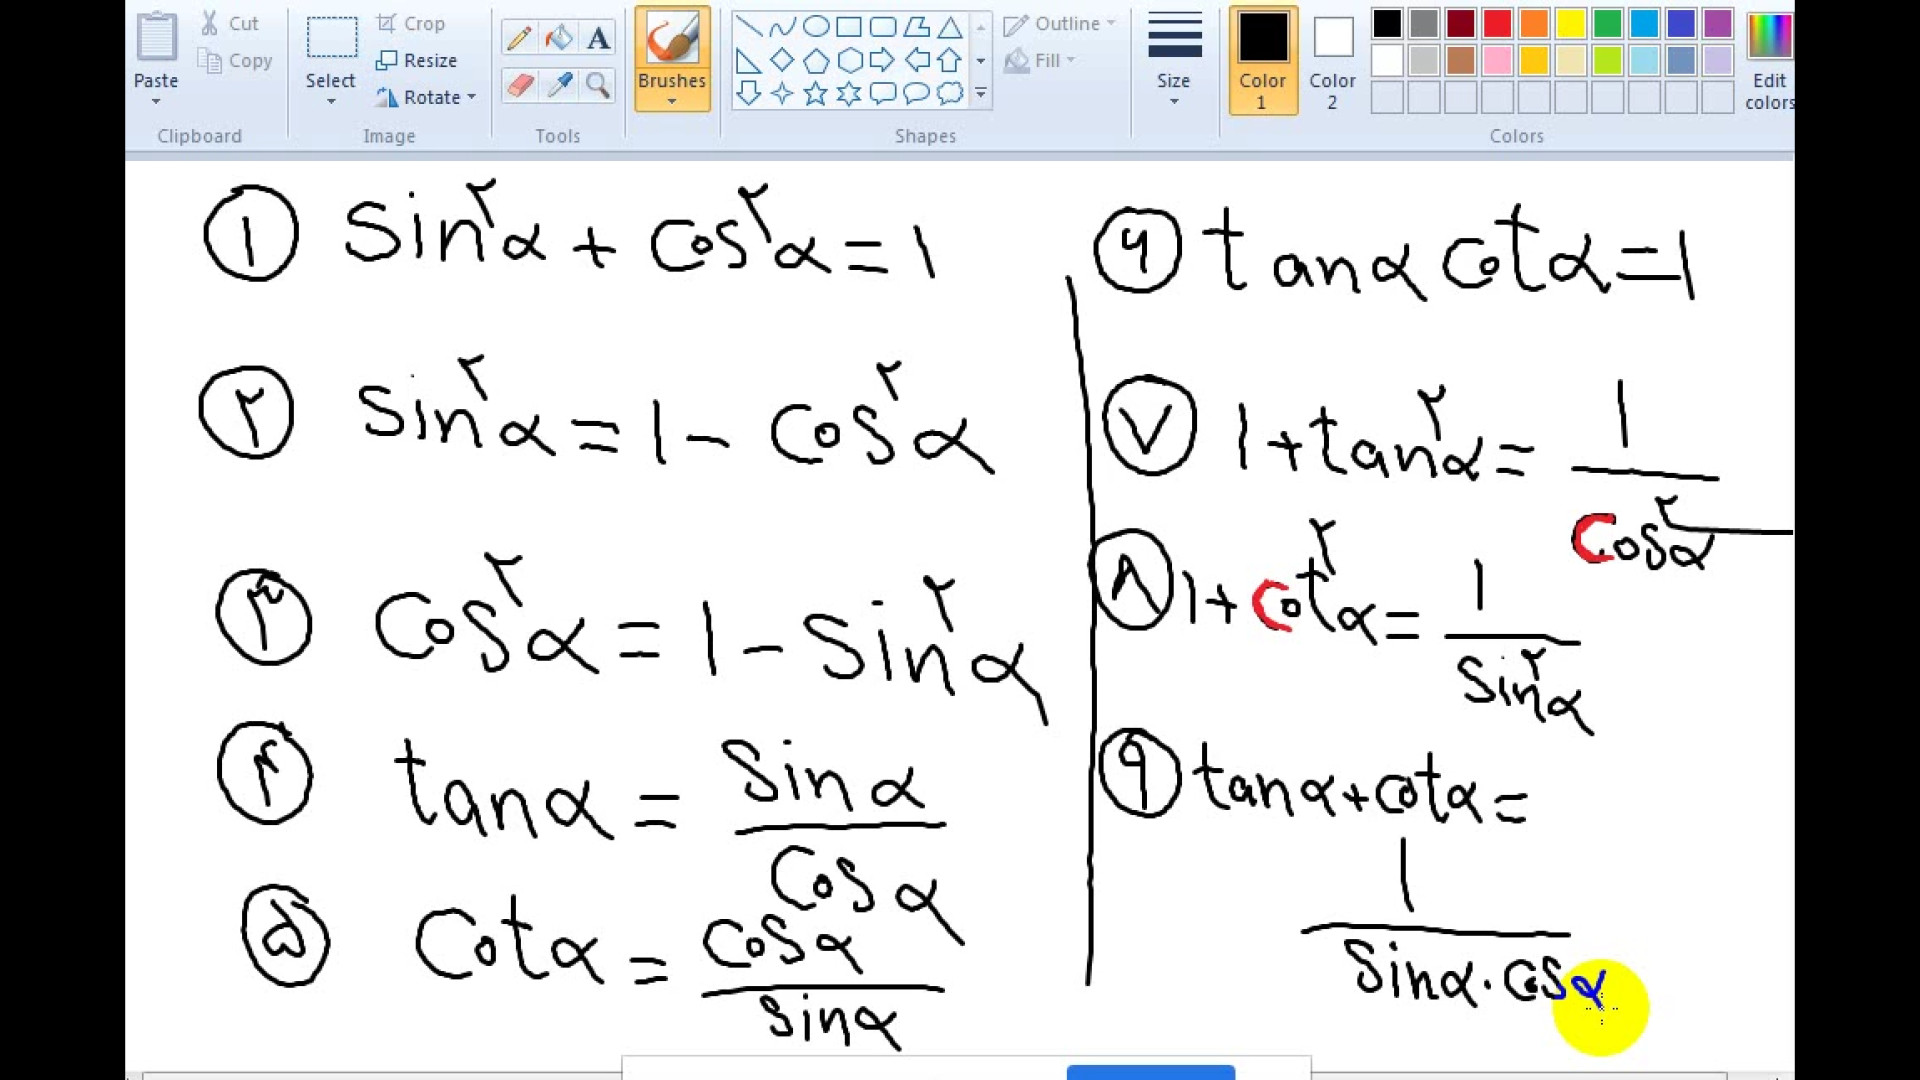 Cut
Copy
Paste
Clipboard
Select
Crop
Resize
Rotate
Image
A
Tools
Brushes
Shapes
Outline
Fill
Size
Color 1
Color 2
Edit colors
Colors
۱ Sin^۲ α + Cos^۲ α = ۱
۲ Sin^۲ α = ۱ - Cos^۲ α
۳ Cos^۲ α = ۱ - Sin^۲ α
۴ tan α = Sin α / Cos α
۵ Cot α = Cos α / Sin α
۶ tan α Cot α = ۱
۷ ۱ + tan^۲ α = ۱ / Cos^۲ α
۸ ۱ + Cot^۲ α = ۱ / Sin^۲ α
۹ tan α + Cot α =
۱ / Sin α . Cos α